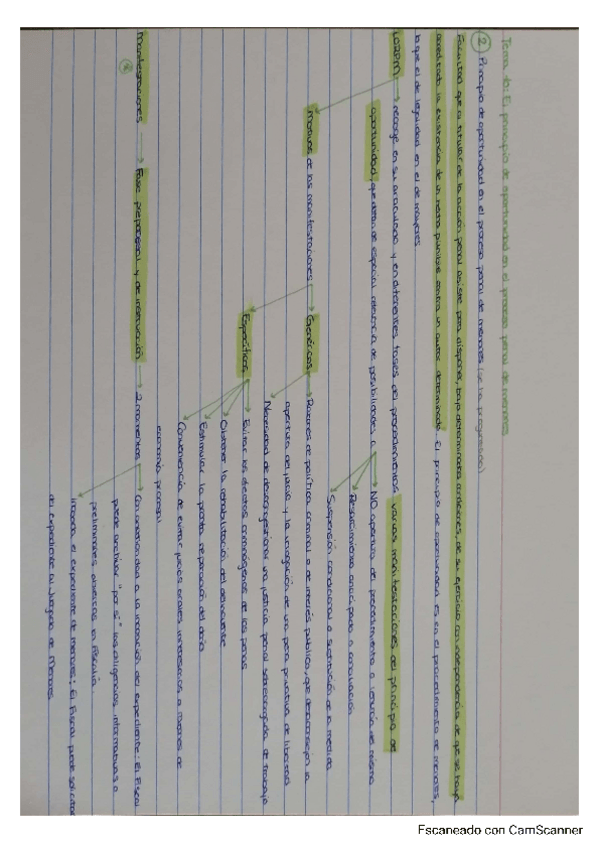 Tema 10: El principio de oportunidad en el proceso penal de menores
② Principio de oportunidad en el proceso penal de menores (se ha progresado)
Facultad que a titular de la acción penal asiste para disponer, bajo determinadas condiciones, de su ejercicio con independencia de que se haya
acreditado la existencia de un hecho punible contra un autor determinado. El principio de oportunidad es en el procedimiento de menores,
lo que el de legalidad en el de mayores
LORPM → recoge en su articulado y en diferentes fases del procedimiento varias manifestaciones del principio de
oportunidad, que dotan de especial relevancia de posibilidades a → NO apertura del procedimiento o renuncia del mismo
Desistimiento anticipado o conciliación
Suspensión condicional o sustitución de la medida
Motivos de las manifestaciones → Genéricos → Razones de política criminal o de interés público, que desaconsejan la
apertura del juicio y la irrogación de una pena privativa de libertad
Necesidad de descongestionar una justicia penal sobrecargada de trabajo
Específicos → Evitar los efectos criminógenos de las penas
Obtener la rehabilitación del delincuente
Estimular la pronta reparación del daño
Conveniencia de evitar juicios orales innecesarios a razones de
economía procesal
Manifestaciones → Fase preprocesal y de intervención → 2 momentos → Con anterioridad a la incoación del expediente: El Fiscal
puede archivar "por sí" las diligencias informativas o
preliminares abiertas en Fiscalía
Incoado el expediente de menores: El Fiscal puede solicitar
del expediente al Juzgado de Menores
Escaneado con CamScanner